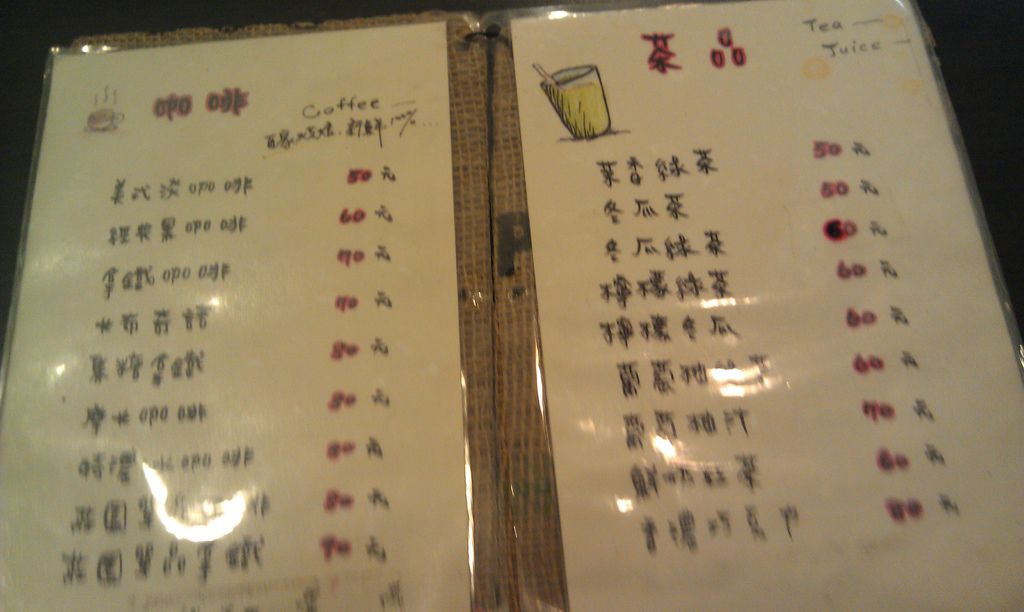 咖啡
Coffee
新鮮100%...
美式淡咖啡 50元
經典黑咖啡 60元
拿鐵咖啡 70元
卡布奇諾 70元
焦糖拿鐵 80元
摩卡咖啡 80元
特濃冰咖啡 80元
80元
茶園單品拿鐵 70元
茶品
Tea
Juice
茉香綠茶 50元
冬瓜茶 50元
冬瓜綠茶 60元
檸檬綠茶 60元
檸檬冬瓜 60元
葡萄柚綠茶 60元
葡萄柚汁 70元
鮮奶紅茶 60元
香濃巧克力 80元